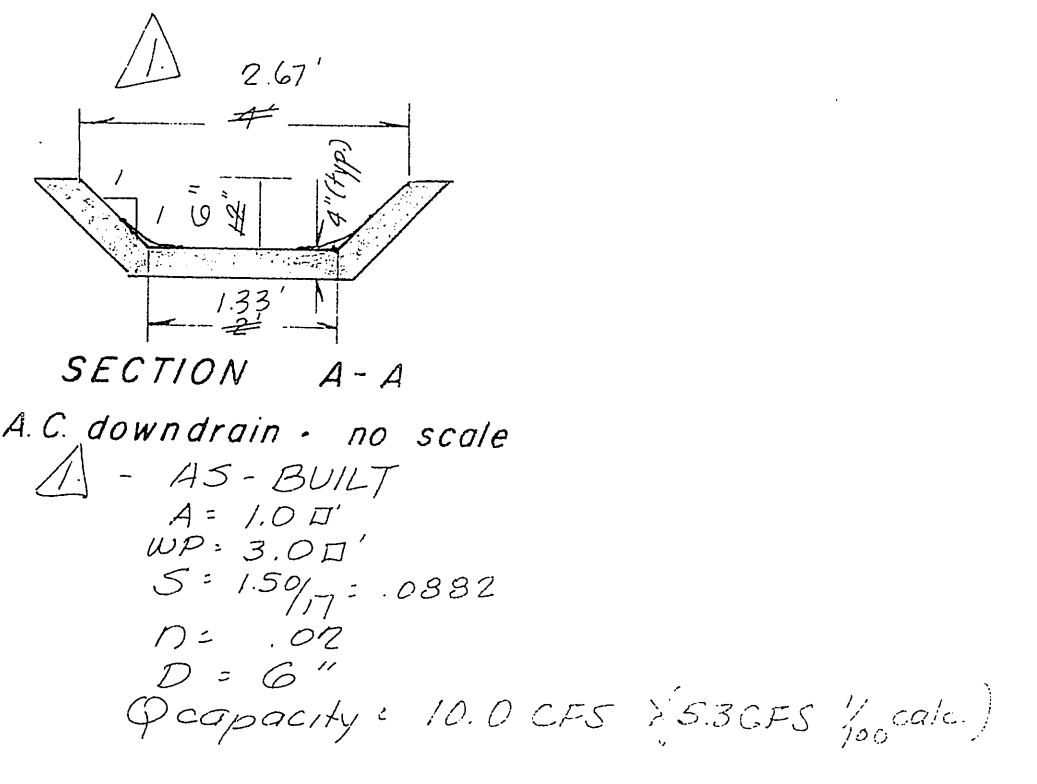 1.
2.67'
4'
1
1
6"
12"
4"(typ.)
1.33'
2'
SECTION A-A
A.C. downdrain · no scale
1. - AS-BUILT
A = 1.0 □'
WP = 3.0 □'
S = 1.50/17 = .0882
n = .02
D = 6"
Qcapacity = 10.0 CFS > (5.3 CFS 1/100 calc.)